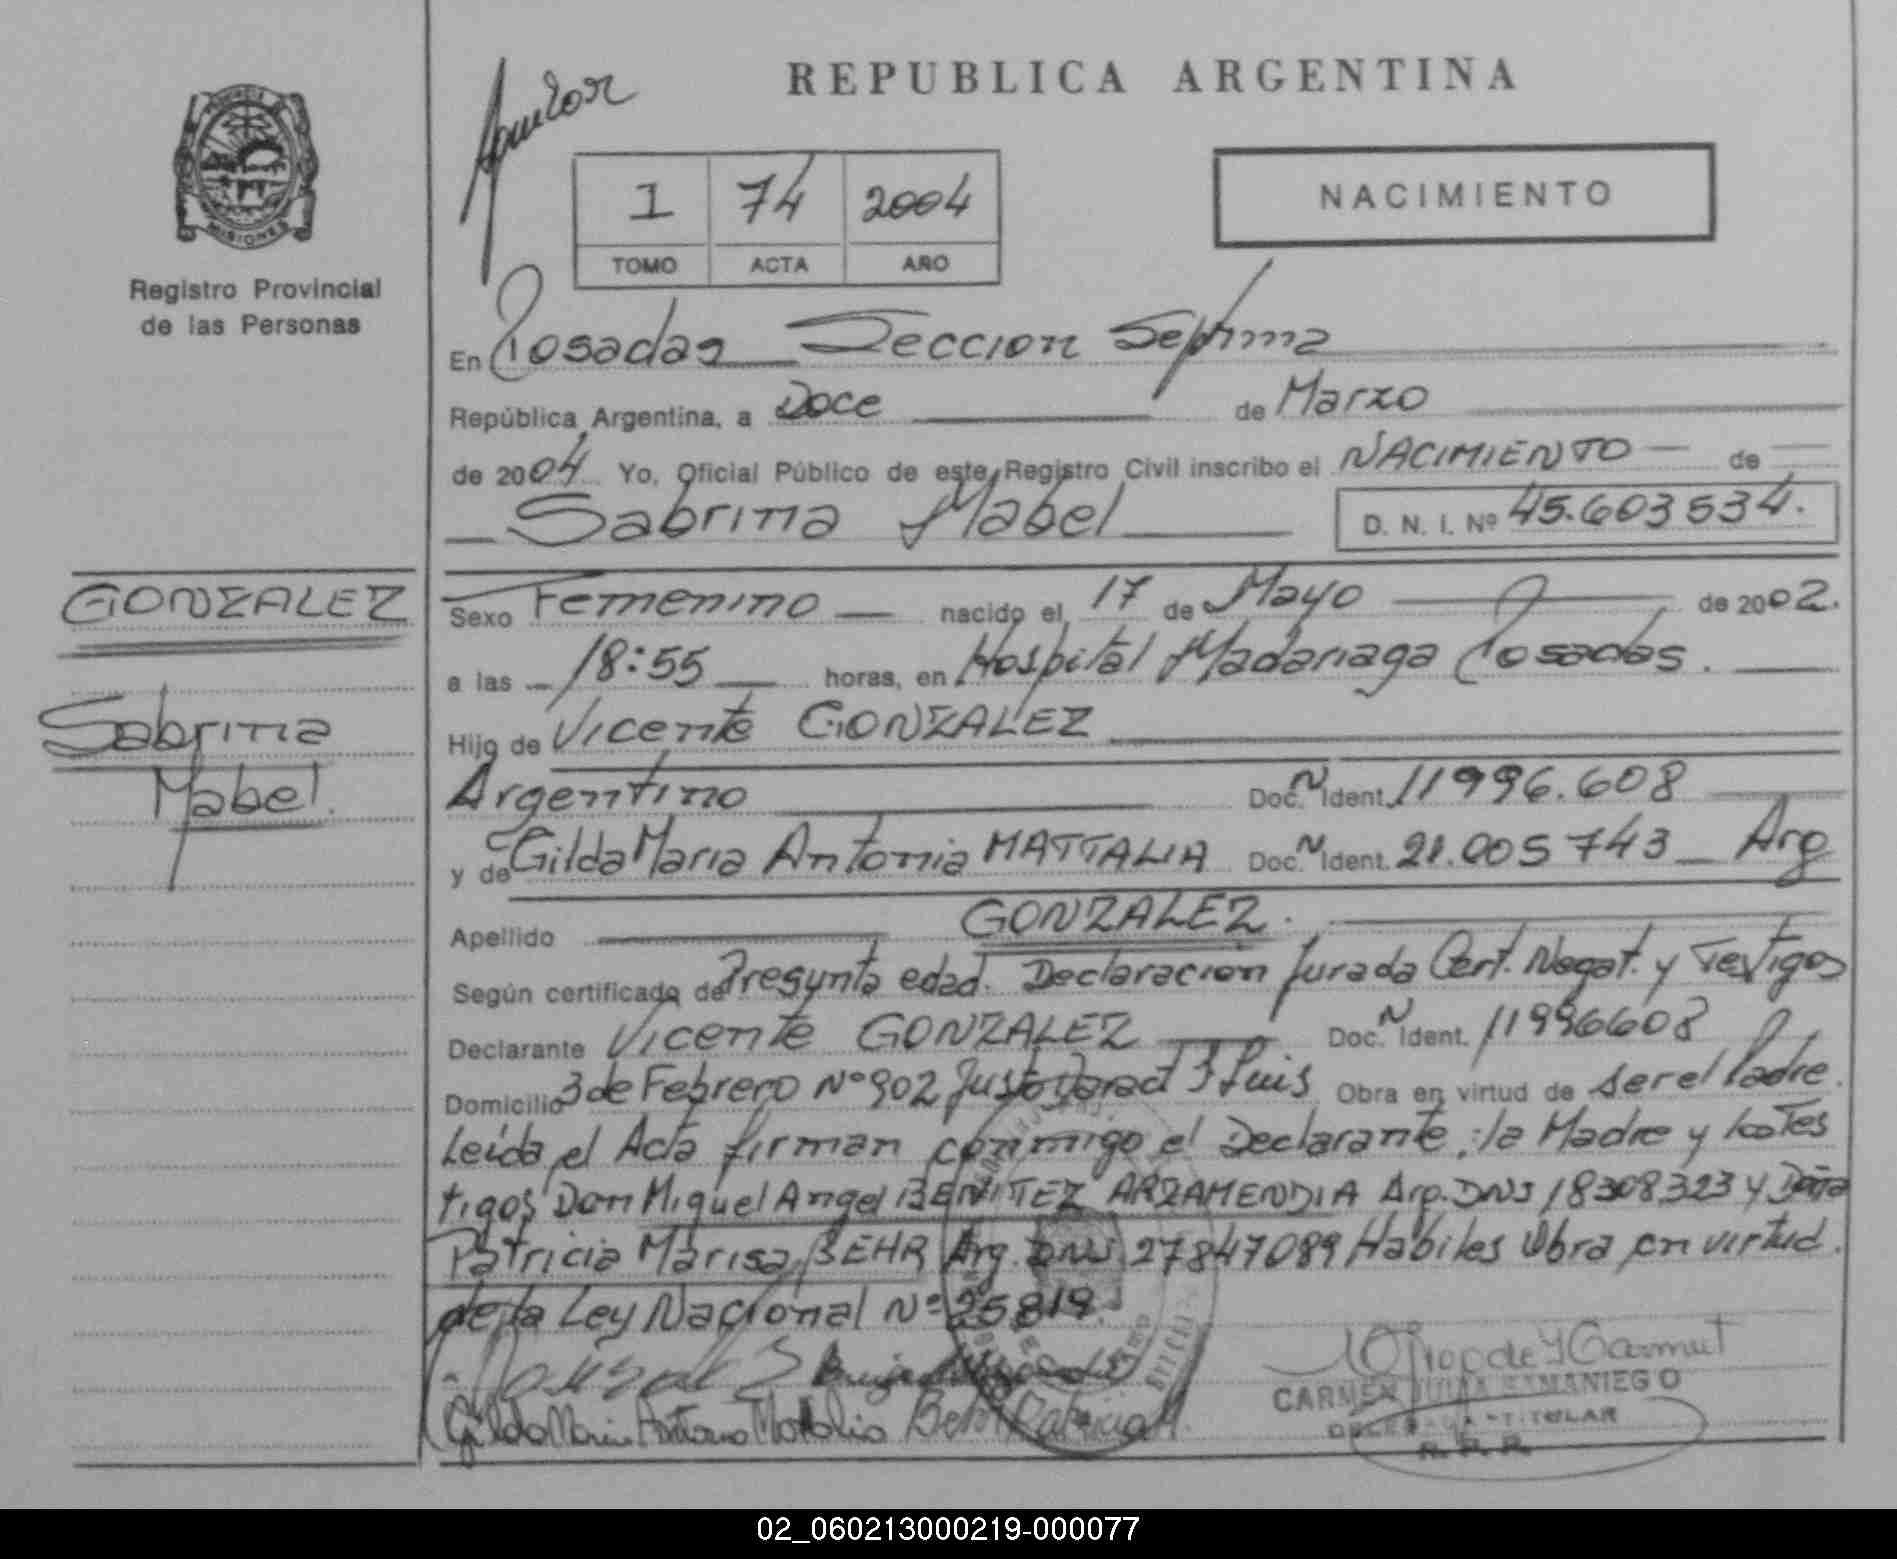 REPUBLICA ARGENTINA
1 74 2004
TOMO ACTA AÑO
NACIMIENTO
PROVINCIA DE MISIONES
Registro Provincial
de las Personas
En Posadas Seccion Septima
República Argentina, a Doce de Marzo
de 2004 Yo, Oficial Público de este Registro Civil inscribo el NACIMIENTO de
Sabrina Mabel D. N. I. Nº 45.603534.
GONZALEZ
Sabrina
Mabel.
Sexo Femenino nacido el 17 de Mayo de 2002.
a las 18:55 horas, en Hospital Madariaga Posadas.
Hijo de Vicente GONZALEZ
Argentino Doc. N Ident. 11996.608
y de Gilda Maria Antonia MATTALIA Doc. N Ident. 21.005743 Arg
Apellido GONZALEZ.
Según certificado de Presunta edad. Declaración Jurada Cert. Negat. y Testigos
Declarante Vicente GONZALEZ Doc. N Ident. 11996608
Domicilio 3 de Febrero Nº 902 Justo Daract S Luis Obra en virtud de ser el Padre.
Leida el Acta firman conmigo el Declarante, la Madre y los Tes
tigos Don Miguel Angel BENITEZ ARZAMENDIA Arg. DNI 18308323 y Doña
Patricia Marisa BEHR Arg. DNI 27847089 Habiles Obra en virtud
de la Ley Nacional Nº 25819.
Gilda Maria Antonia Mattalia Behr Patricia M.
CARMEN JULIA SAMANIEGO
DELEGADA TITULAR
R. P. P.
02_060213000219-000077